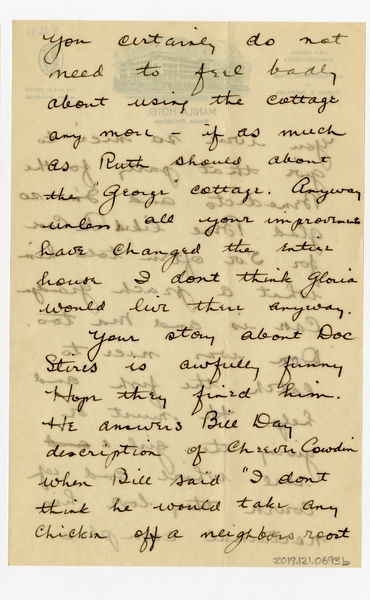 You certainly do not
need to feel badly
about using the cottage
any more - if as much
as Ruth should about
the "George" cottage. Anyway
unless all your improvements
have changed the entire
house I dont think Gloria
would live there anyway.
Your story about Doc
Stires is awfully funny
Hope they fined him.
He answers Bill Day
description of Cheever Cowdin
when Bill said "I dont
think he would take any
chicken off a neighbors roost
2019.121.0693b